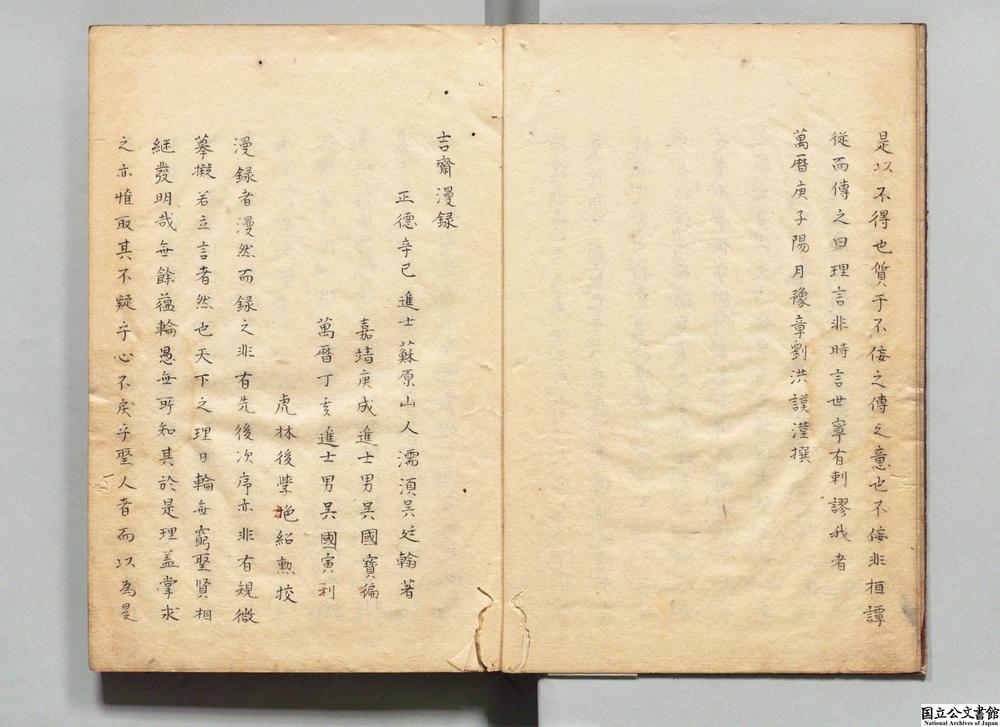 是以不得也質于不佞之傳之意也不佞非桓譚
從而傳之曰理言非時言世寧有剌謬我者
萬曆庚子陽月豫章劉洪謨漟撰
吉齋漫録
正德辛巳進士蘇原山人濡湏吴廷翰著
嘉靖庚戌進士男吴國寶徧
萬曆丁亥進士男吴國寅利
虎林後學紹勲挍
漫録者漫然而録之非有先後次序亦非有規微
摹擬若立言者然也天下之理日輪無窮聖賢相
継發明哉無餘藴輪愚無所知其於是理盖掌求
之亦惟取其不疑乎心不戾乎聖人者而以為是
国立公文書館
National Archives of Japan